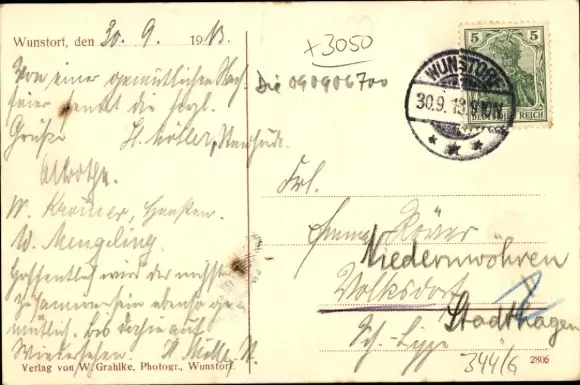 Wunstorf, den 30. 9. 1913.
Von einer gemütlichen Nach
feier sendet die herzl.
Grüße H. Köller, Neustadt.
W. Krämer,
W. Mengeling.
Hoffentlich wird das nächste
Zusammensein ebenso ge
mütlich, bis dahin auf
Wiedersehen. H.
Verlag von W. Grahlke, Photogr., Wunstorf.
+3050
Die 090906700
WUNSTORF
30.9.13
5 5
DEUTSCHES REICH
Frl.
Emma
Niedernwöhren
Volksdorf
Stadthagen
Sch. Lippe
344/6
2806